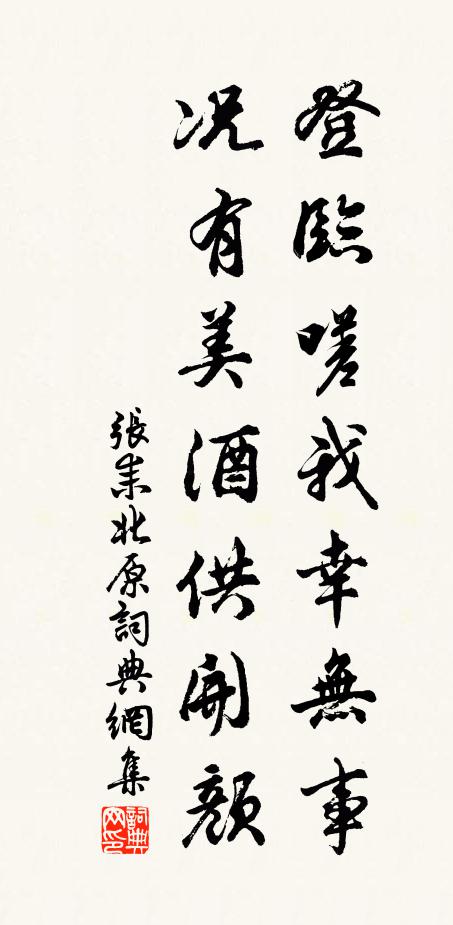 登臨嗟我幸無事
况有美酒供開顔
張耒北原詞典網集
詞典
网印